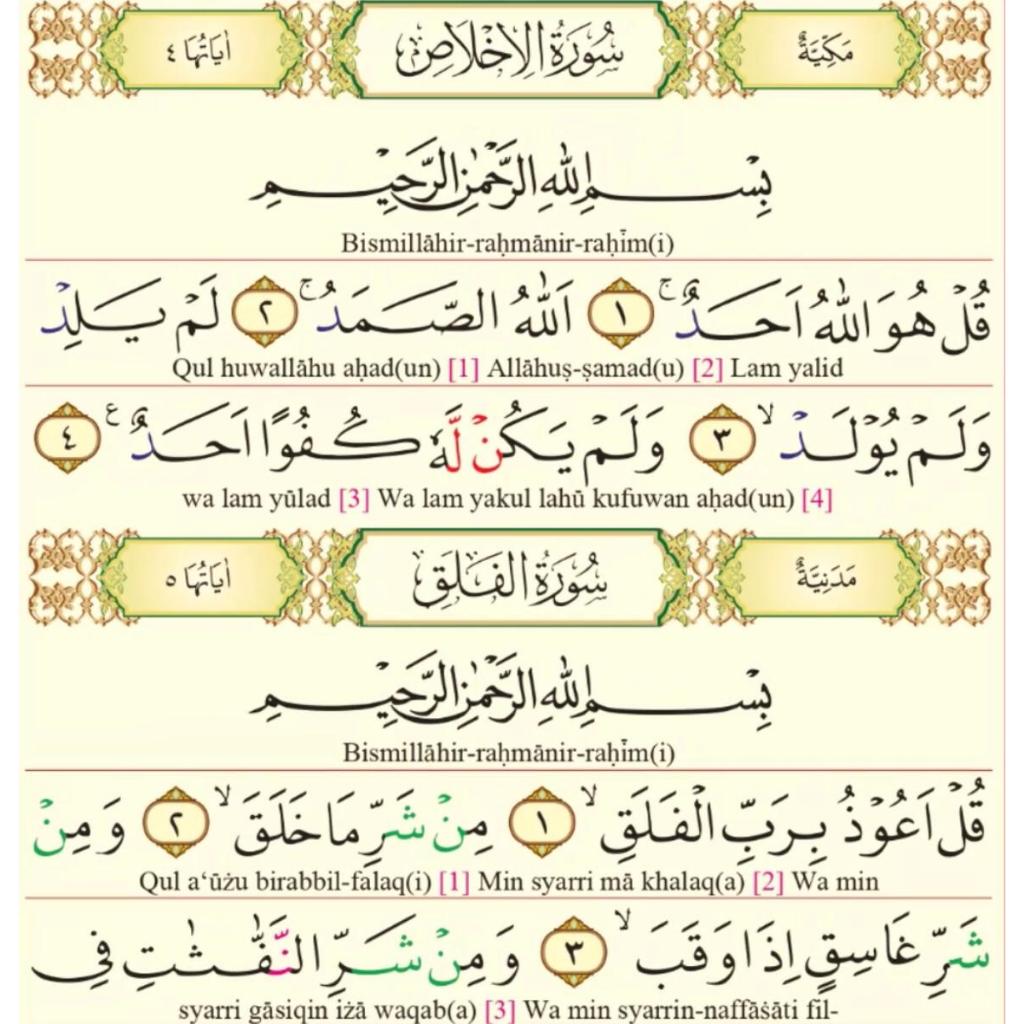 مَكِّيَّةٌ سُوْرَةُ الْاِخْلَاصِ اٰيَاتُهَا ٤
بِسْمِ اللّٰهِ الرَّحْمٰنِ الرَّحِيْمِ
Bismillāhir-raḥmānir-raḥīm(i)
قُلْ هُوَ اللّٰهُ اَحَدٌۚ ١ اَللّٰهُ الصَّمَدُۚ ٢ لَمْ يَلِدْ
Qul huwallāhu aḥad(un) [1] Allāhuṣ-ṣamad(u) [2] Lam yalid
وَلَمْ يُوْلَدْۙ ٣ وَلَمْ يَكُنْ لَّهٗ كُفُوًا اَحَدٌ ࣖ ٤
wa lam yūlad [3] Wa lam yakul lahū kufuwan aḥad(un) [4]
مَدَنِيَّةٌ سُوْرَةُ الْفَلَقِ اٰيَاتُهَا ٥
بِسْمِ اللّٰهِ الرَّحْمٰنِ الرَّحِيْمِ
Bismillāhir-raḥmānir-raḥīm(i)
قُلْ اَعُوْذُ بِرَبِّ الْفَلَقِۙ ١ مِنْ شَرِّ مَا خَلَقَۙ ٢ وَمِنْ
Qul a‘ūżu birabbil-falaq(i) [1] Min syarri mā khalaq(a) [2] Wa min
شَرِّ غَاسِقٍ اِذَا وَقَبَۙ ٣ وَمِنْ شَرِّ النَّفّٰثٰتِ فِى
syarri gāsiqin iżā waqab(a) [3] Wa min syarrin-naffāṡāti fil-